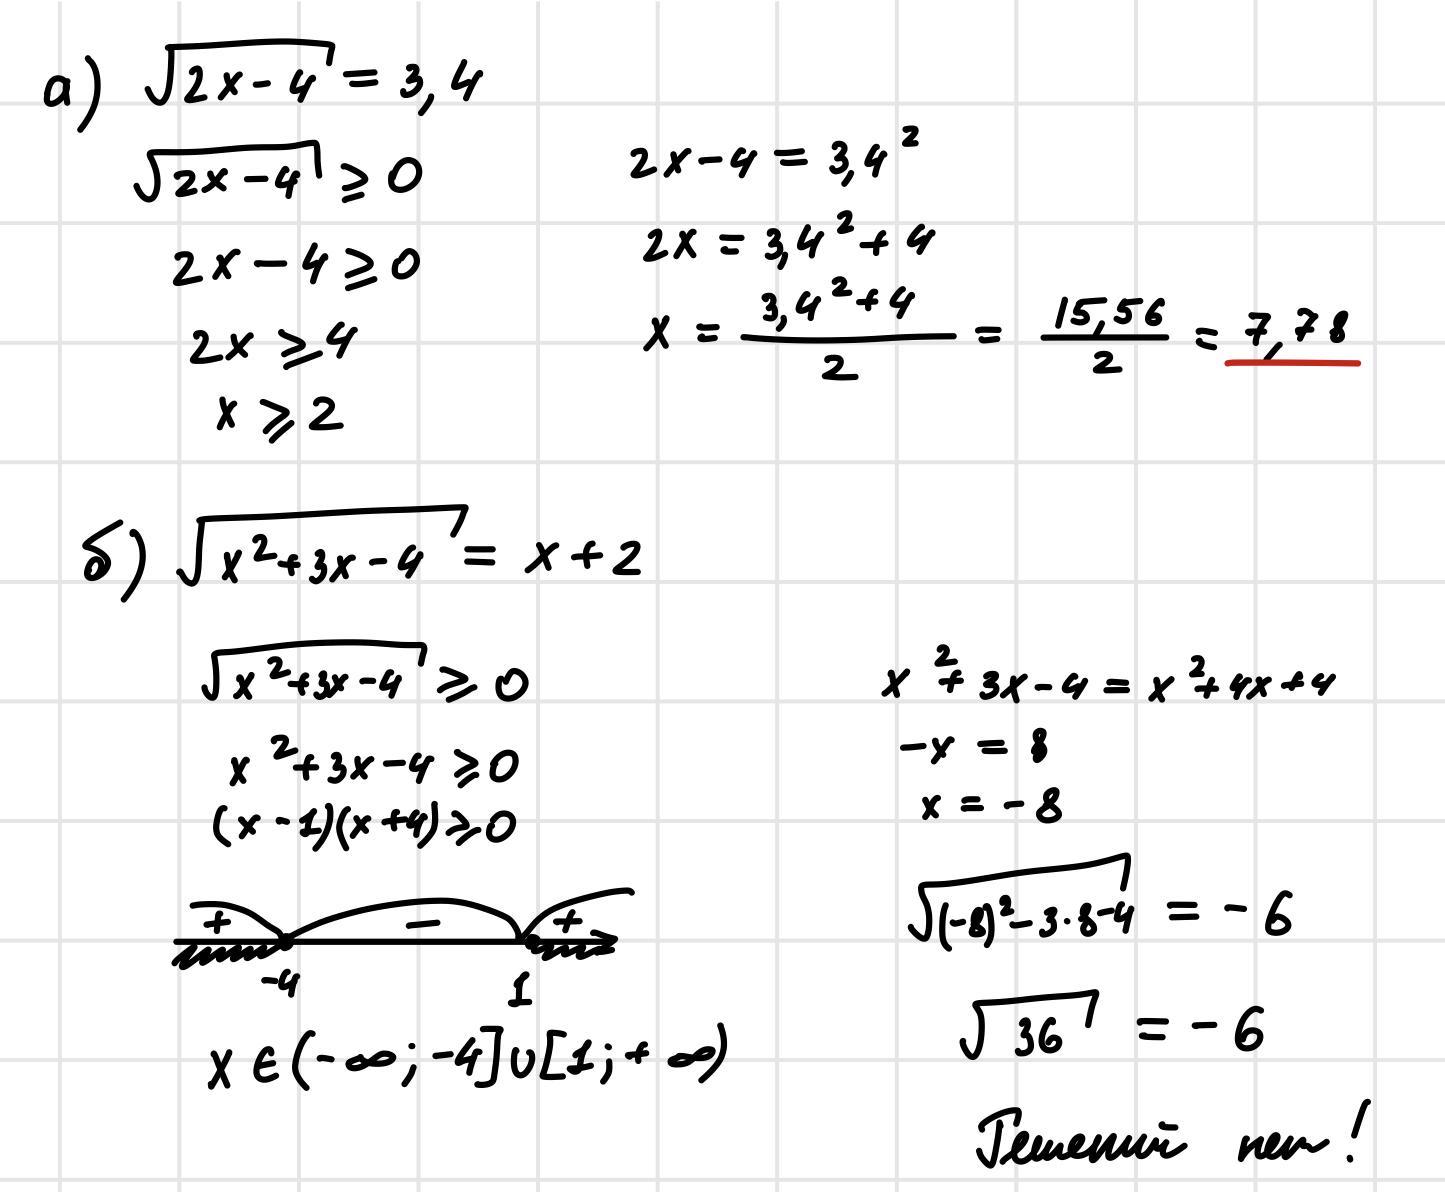 а) √(2x - 4) = 3,4
√(2x - 4) ⩾ 0
2x - 4 ⩾ 0
2x ⩾ 4
x ⩾ 2
2x - 4 = 3,4²
2x = 3,4² + 4
x = (3,4² + 4)/2 = 15,56/2 = 7,78
б) √(x² + 3x - 4) = x + 2
√(x² + 3x - 4) ⩾ 0
x² + 3x - 4 ⩾ 0
(x - 1)(x + 4) ⩾ 0
+ - +
-4 1
x ∈ (-∞; -4] ∪ [1; +∞)
x² + 3x - 4 = x² + 4x + 4
-x = 8
x = -8
√((-8)² - 3·8 - 4) = -6
√36 = -6
Решений нет!